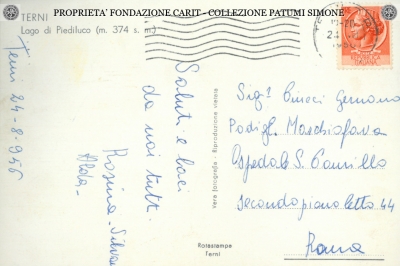 PROPRIETA' FONDAZIONE CARIT - COLLEZIONE PATUMI SIMONE
TERNI
Lago di Piediluco (m. 374 s. m.)
Terni 24-8-956
Saluti e baci
da noi tutti
Rosina - Silvana
Alda -
vera fotografia - Riproduzione vietata
Rotostampa
Terni
Sig.
Padigl. Morschiafava
Ospedale S. Camillo
secondo piano letto 44
Roma